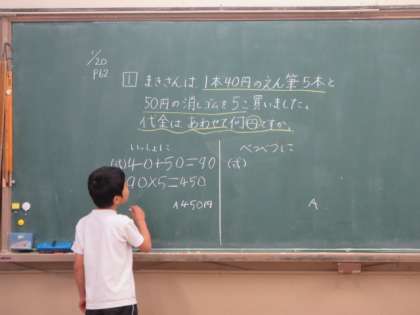 1/20
P62
1 まきさんは、1本40円のえん筆5本と
50円の消しゴムを5こ買いました。
代金はあわせて何円ですか。
いっしょに
(式)40+50=90
90×5=450
A450円
べつべつに
(式)
A